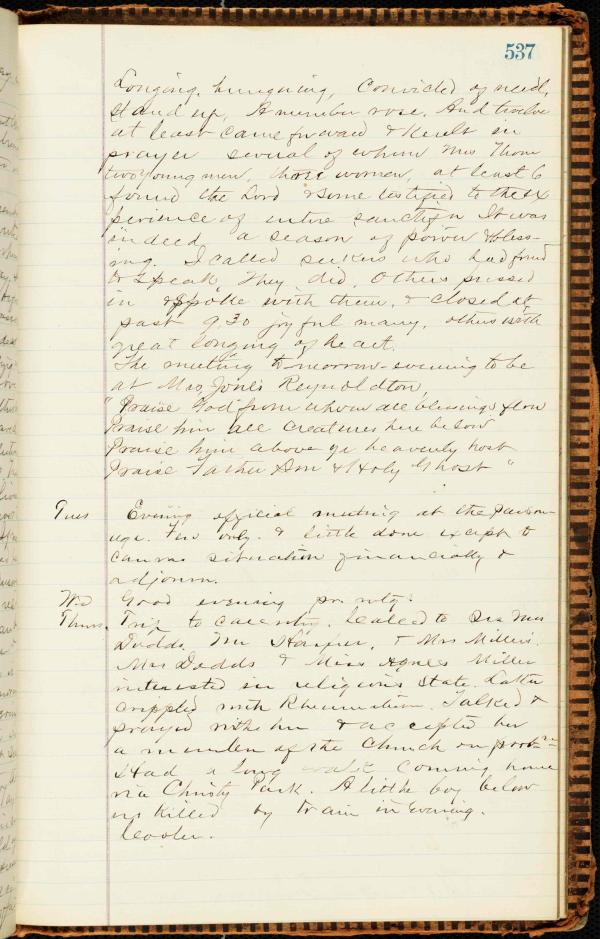 537
Longing, hungering, Convicted of need,
stand up, A number rose. And twelve
at least came forward & knelt in
prayer several of whom Mrs Thom
two young men, three women, at least 6
found the Lord & some testified to the ex
perience of entire sanctifn It was
indeed a season of power & bless-
ing. I called seekers who had found
to speak, They did, Others pressed
in & spoke with them, & closed at
past 9.30 joyful many, others with
great longing of heart.
The meeting tomorrow evening to be
at Mrs Jones Reynoldton
"Praise God from whom all blessings flow
Praise him all creatures here below
Praise him above ye heavenly host
Praise Father Son & Holy Ghost"
Tues Evening official meeting at the parson-
age. Few only. & little done except to
canvas situation financially &
adjourn.
Wed Good evening pr. mtg.
Thurs. Trip to call. Called to see Mrs
Dodds, Mr & Mrs Millers.
Mrs Dodds & Miss Agnes Miller
interested in religious state. Latter
crippled with Rheumatism. Talked &
prayed with her & accepted her
a member of the Church on
Had a long walk coming home
via Christy Park. A little boy below
us killed by train in evening.
Cooler.